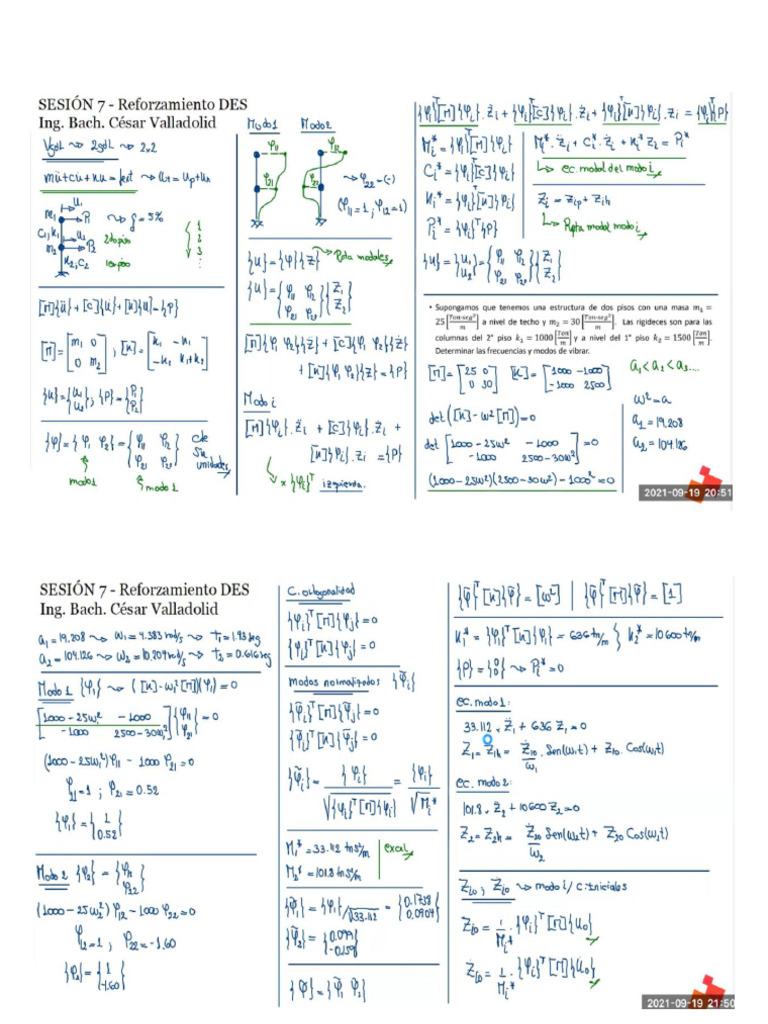 SESIÓN 7 - Reforzamiento DES
Ing. Bach. César Valladolid
Vgdl ~> 2gdl ~> 2x2
mü+cu̇+ku=fext ~> u_T=u_p+u_h
u_1
m_1 P_1 ~> ξ=5%
c_1,k_1 u_2 2do piso
m_2 P_2
k_2,c_2 1er piso
1
2
3
⋮
[M]{ü} + [C]{u̇}+[K]{u}={P}
[M]=[m_1 0; 0 m_2] ; [K]=[k_1 -k_1; -k_1 k_1+k_2]
{u}={u_1; u_2} ; {P}={P_1; P_2}
{φ}={φ_1 φ_2}={φ_11 φ_12; φ_21 φ_22} de su unidades
modo1 modo1
Modo1 Modo2
φ_11
φ_21 φ_22 ~> φ_22=(-)
(φ_11=1 ; φ_12=1)
{u}={φ}{z} ~> Rpta modales
{u}={φ_11 φ_12; φ_21 φ_22}{z_1; z_2}
[M]{φ_1 φ_2}{z̈} + [C]{φ_1 φ_2}{ż}
+ [K]{φ_1 φ_2}{z}={P}
Modo i
[M]{φ_i}.z̈_i + [C]{φ_i}.ż_i +
[K]{φ_i}.z_i ={P}
x {φ_i}^T izquierda.
{φ_i}^T[M]{φ_i}.z̈_i+{φ_i}^T[C]{φ_i}.ż_i+{φ_i}^T[K]{φ_i}.z_i={φ_i}^T{P}
M_i*={φ_i}^T[M]{φ_i} M_i*.z̈_i + C_i*.ż_i + K_i* z_i = P_i*
C_i*={φ_i}^T[C]{φ_i} ↳ ec. modal del modo i
K_i*={φ_i}^T[K]{φ_i} z_i = z_ip+z_ih
P_i*={φ_i}^T{P} ↳ Rpta modal modo i
{u}={u_1; u_2}={φ_11 φ_12; φ_21 φ_22}{z_1; z_2}
• Supongamos que tenemos una estructura de dos pisos con una masa m_1 =
25 [Ton·seg²/m] a nivel de techo y m_2 = 30 [Ton·seg²/m]. Las rigideces son para las
columnas del 2° piso k_1 = 1000 [Ton/m] y a nivel del 1° piso k_2 = 1500 [Ton/m].
Determinar las frecuencias y modos de vibrar.
[M]=[25 0; 0 30] [K]=[1000 -1000; -1000 2500] a_1<a_2<a_3....
det([K]-w²[M])=0 w²=a
a_1=19.208
det[1000-25w² -1000; -1000 2500-30w²]=0 a_2=104.126
(1000-25w²)(2500-30w²)-1000²=0
2021-09-19 20:51
SESIÓN 7 - Reforzamiento DES
Ing. Bach. César Valladolid
a_1=19.208 ~> w_1=4.383 rad/s ~> t_1=1.43 seg
a_2=104.126 ~> w_2=10.204 rad/s ~> t_2=0.616 seg
Modo 1 {φ_1} ~> ([K]-w_1²[M]){φ_1}=0
[1000-25w² -1000; -1000 2500-30w²]{φ_11; φ_21}=0
(1000-25w_1²)φ_11 - 1000 φ_21=0
φ_11=1 ; φ_21=0.52
{φ_1}={1; 0.52}
Modo 2 {φ_2}={φ_12; φ_22}
(1000-25w_2²)φ_12-1000φ_22=0
φ_12=1 ; φ_22=-1.60
{φ_2}={1; -1.60}
C. ortogonalidad
{φ_i}^T[M]{φ_j}=0
{φ_i}^T[K]{φ_j}=0
modos normalizados {φ̃}
{φ̃_i}^T[M]{φ̃_j}=0
{φ̃_i}^T[K]{φ̃_j}=0
{φ̃_i}={φ_i}/√({φ_i}^T[M]{φ_i})={φ_i}/√M_i*
M_1*=33.112 tns²/m
M_2*=101.8 tns²/m excel
{φ̃_1}={φ_1}/√33.112={0.1738; 0.0904}
{φ̃_2}={0.099; -0.159}
{φ̃}={φ̃_1 φ̃_2}
{φ̃}^T[K]{φ̃}=[w²] | {φ̃}^T[M]{φ̃}=[1]
K_1*={φ_1}^T[K]{φ_1}=636 tn/m } K_2*=10600 tn/m
{P}={0; 0} ~> P_i*=0
ec. modo 1:
33.112.z̈_1 + 636 z_1=0
Z_1=Z_1h= Ż_10/w_1 . Sen(w_1t) + Z_10 Cos(w_1t)
ec. modo 2:
101.8.z̈_2+10600z_2=0
Z_2=Z_2h= Ż_20/w_2 Sen(w_2t) + Z_20 Cos(w_2t)
Z_i0 ; Ż_i0 ~> modo i / c. iniciales
Z_i0=1/M_i* . {φ_i}^T[M]{u_0}
Ż_i0=1/M_i* . {φ_i}^T[M]{u̇_0}
2021-09-19 21:50